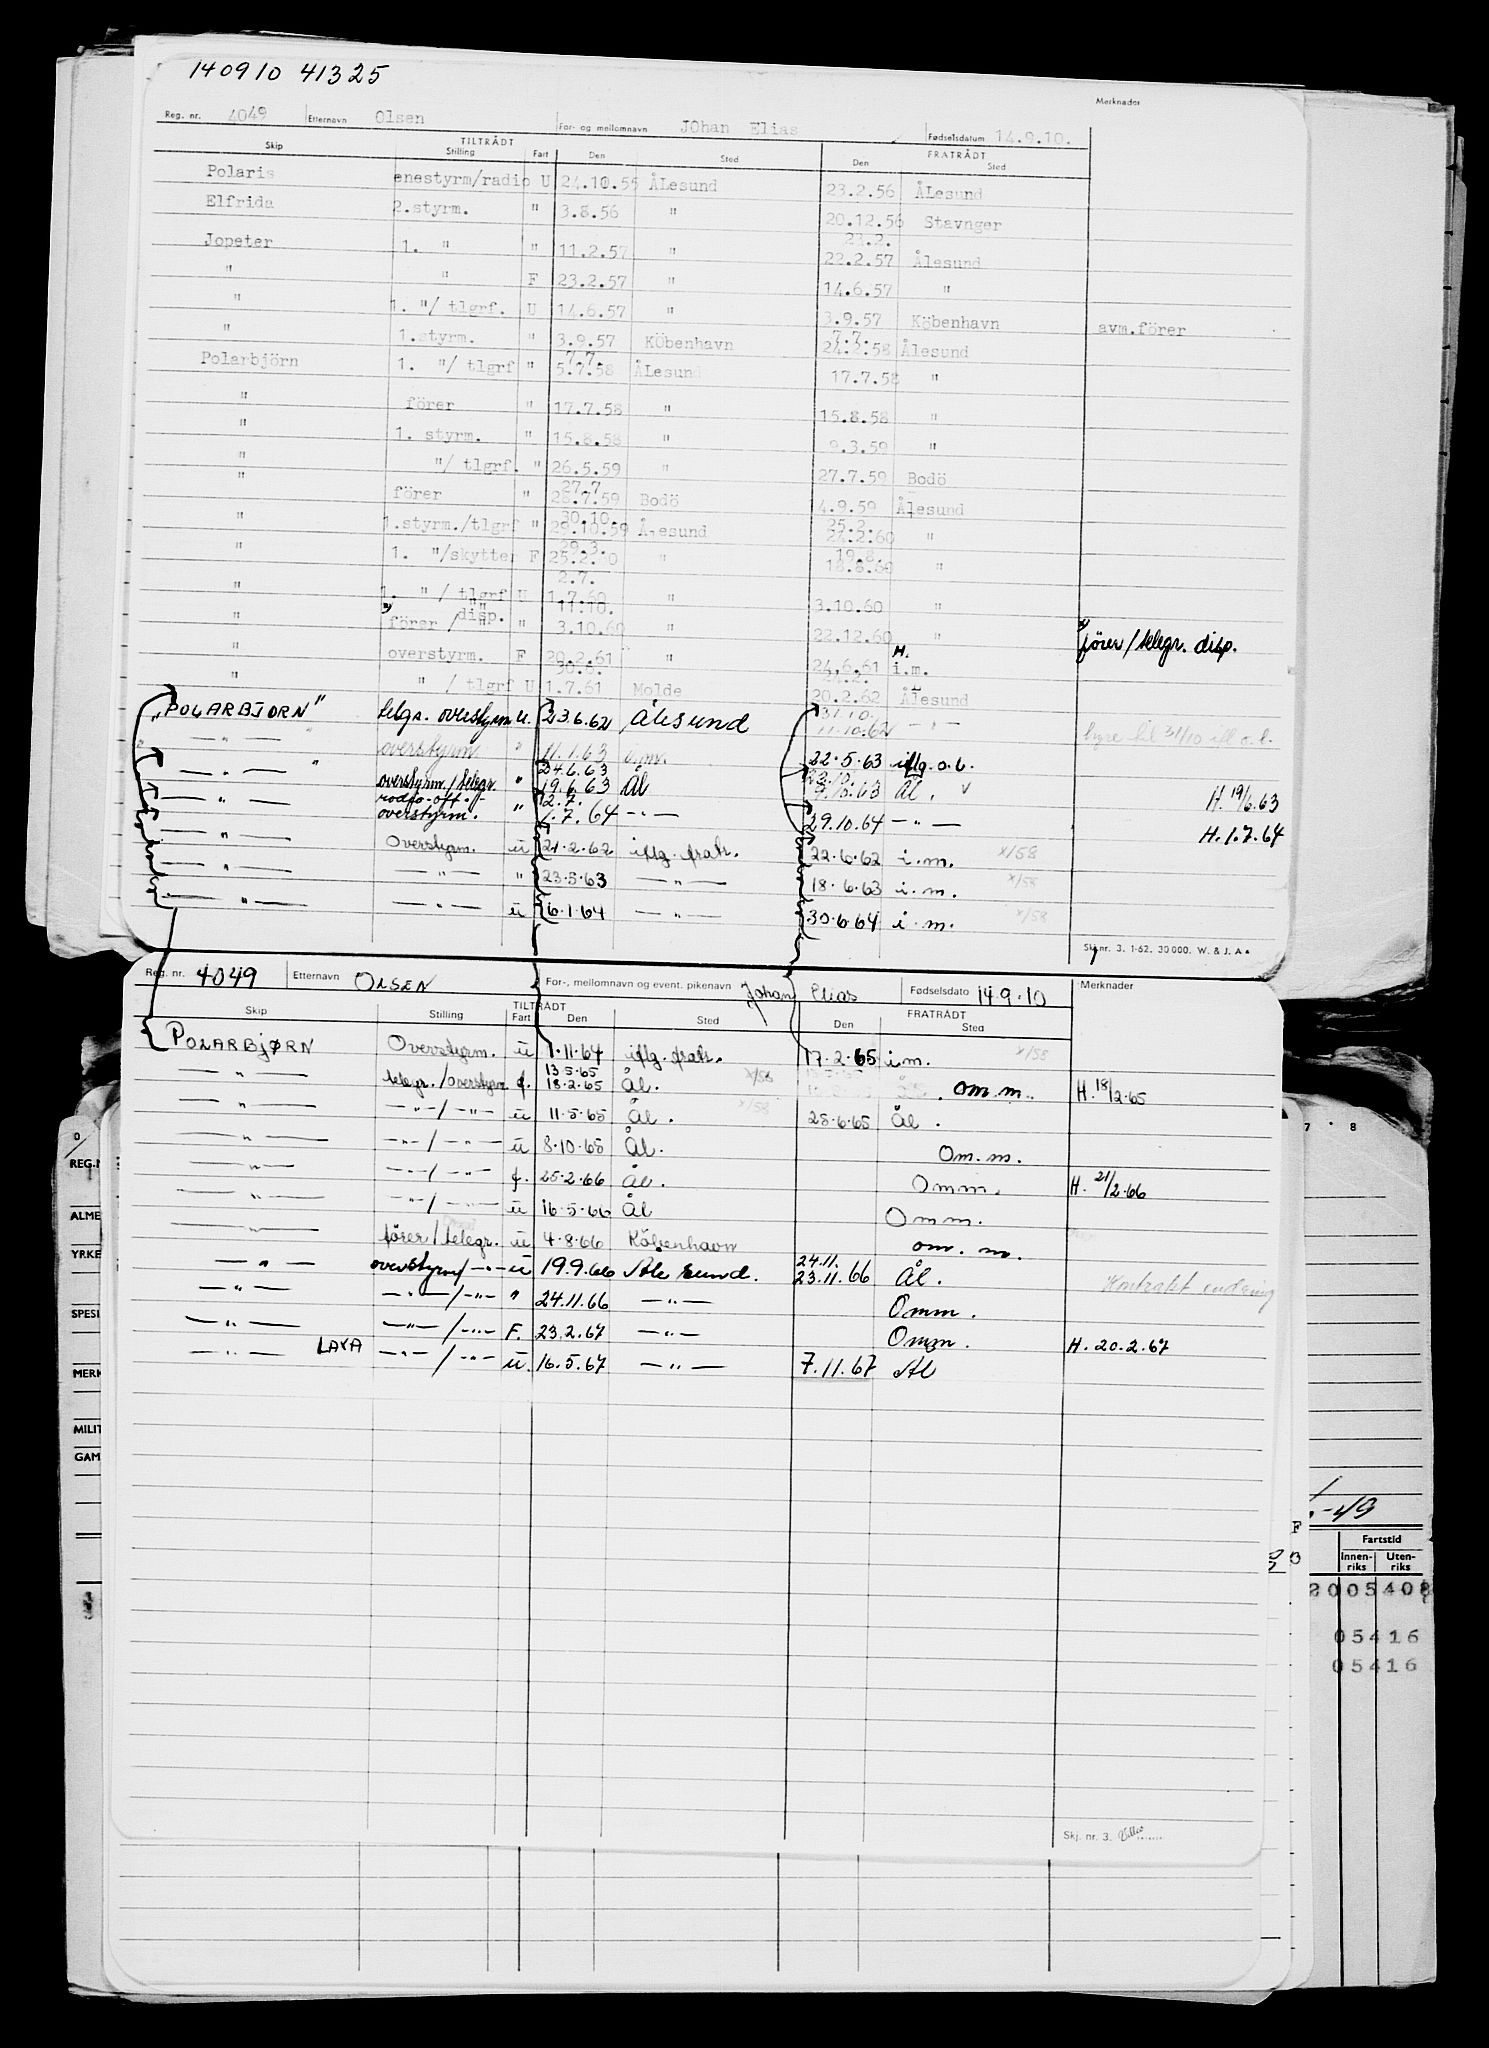 140910 41325
Merknader
Reg. nr. 4049 Etternavn Olsen For- og mellomnavn JOhan Elias Fødselsdatum 14.9.10.
TILTRÅDT FRATRÅDT
Skip Stilling Fart Den Sted Den Sted
Polaris enestyrm/radio U 24.10.55 ÅLesund 23.2.56 ÅLesund
Elfrida 2.styrm. " 3.8.56 " 20.12.56 Stavnger
23.2.
Jopeter 1. " " 11.2.57 " 22.2.57 Ålesund
" " F 23.2.57 " 14.6.57 "
" 1. "/ tlgrf. U 14.6.57 " 3.9.57 Köbenhavn avm.förer
7.7.
" 1.styrm. " 3.9.57 KÖbenhavn 24.2.58 Ålesund
7.7.
Polarbjörn 1. "/ tlgrf " 5.7.58 ÅLesund 17.7.58 "
" förer " 17.7.58 " 15.8.58 "
" 1. styrm. " 15.8.58 " 9.3.59 "
" "/ tlgrf. " 26.5.59 " 27.7.59 Bodö
27.7
" förer " 28.7.59 Bodö 4.9.59 Ålesund
30.10. 25.2.
" 1.styrm./tlgrf " 29.10.59 Ålesund 24.2.60 "
29.3. 19.8.
" 1. "/skytter F 25.2.60 " 18.8.60 "
2.7.
" 1. " / tlgrf U 1.7.60 " 3.10.60 "
disp. 11.10.
" förer / " " 3.10.60 " 22.12.60 " förer/telegr. disp.
" overstyrm. F 20.2.61 " 24.6.61 H. i.m.
" " / tlgrf U 1.7.61 Molde 20.2.62 Ålesund
31.10.
"POLARBJORN" telgr. overstyrm u. 23.6.62 Ålesund 11.10.62 — " — hyre til 31/10 ifl o.b.
— " — overstyrm " 11.1.63 i.m. 22.5.63 iflg. o.b.
24.6.63
— " — overstyrm./telegr. " 19.6.63 Ål Ål. H. 19/6.63
radio-off. 2.7.
— " — overstyrm. " 1.7.64 — " — 29.10.64 — " — H. 1.7.64
— " — Overstyrm. u 21.2.62 iflg. fratr. 22.6.62 i.m. x/58
— " — — " — " 23.5.63 — " — 18.6.63 i.m. x/58
— " — — " — u 6.1.64 — " — 30.6.64 i.m. x/58
Skj.nr. 3. 1-62. 30000. W. & J. A.
Reg. nr. 4049 Etternavn OLSEN For-, mellomnavn og event. pikenavn Johan Elias Fødselsdato 14.9.10 Merknader
TILTRÅDT FRATRÅDT
Skip Stilling Fart Den Sted Den Sted
POLARBJØRN Overstyrm. u 1.11.64 iflg. fratr. 17.2.65 i.m. x/58
13.5.65
— " — telegr./overstyrm f. 18.2.65 Ål. x/58 om m. H. 18/2.65
— " — — " — / — " — u 11.5.65 Ål. x/58 25.6.65 Ål.
— " — — " — / — " — u 8.10.65 Ål. Om. m.
— " — — " — / — " — f. 25.2.66 Ål. Omm. H. 21/2.66
— " — — " — / — " — u 16.5.66 Ål Omm.
— " — förer/telegr. u 4.8.66 Köbenhavn om. m.
24.11.
— " — overstyrm/ — " — u 19.9.66 Ålesund. 23.11.66 Ål. Kontrakt endring
— " — — " — / — " — " 24.11.66 — " — Omm.
— " — — " — / — " — F. 23.2.67 — " — Omm. H. 20.2.67
— " — LAXA — " — / — " — u. 16.5.67 — " — 7.11.67 Ål
Skj. nr. 3.
0
REG.N
ALME
YRKE
SPESI
MERK
MILIT
GAM
7 . 8
.-49
F
Fartstid
Innen-riks Uten-riks
2005408
05416
05416